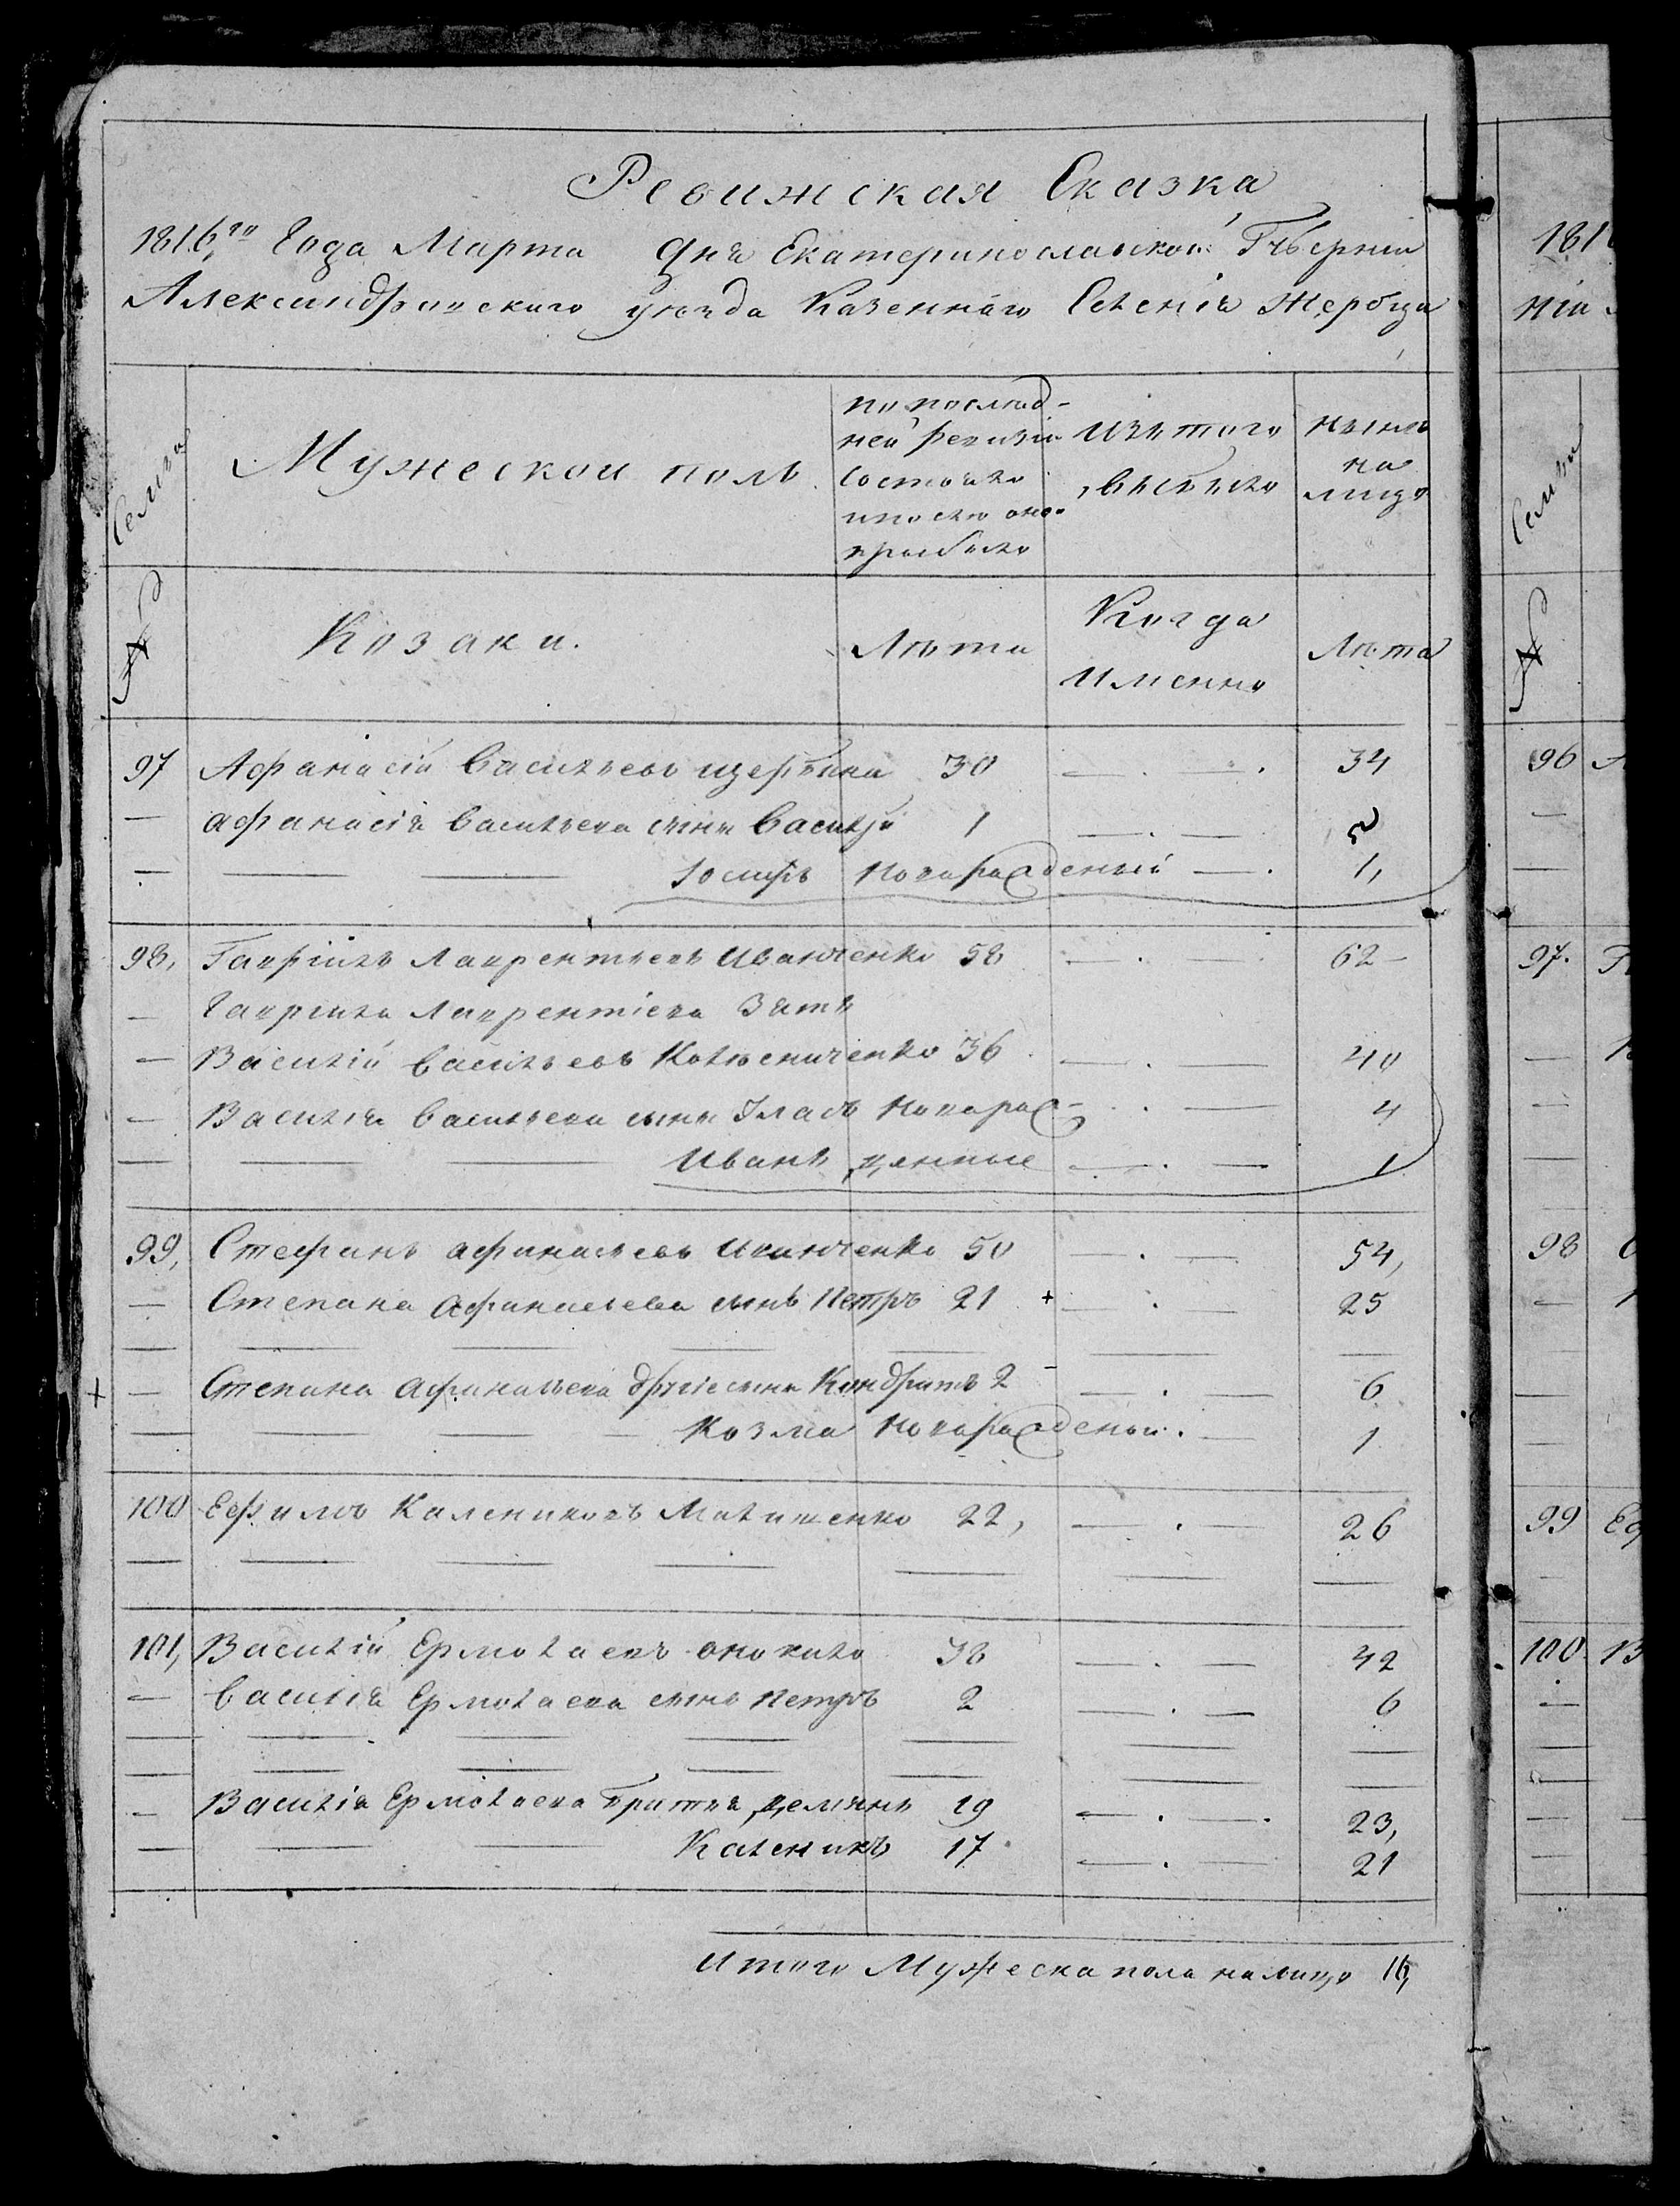 Ревижская Сказка
1816го Года Марта дня Екатеринославской Губернии
Александровского уезда Казенного Селенія Жеребца
Семьи
Мужеской полъ
по послед-
ней ревизіи
состояло
и после оной
прибыло
Изъ того
выбыло
ныне
на
лицо
№
Козаки.
Лета
Когда
Именно
Лета
97 Афанасій Васильевъ щербина 30 — . — . 34
— афанасія Васильева сынъ Василій 1 — . — 5
— — — Іосифъ Новорожденый — . 1,
98, Гавріилъ Лаврентьевъ Иванченко 58 — . — 62
— Гаврила Лаврентіева Зять
— Василій Васильевъ Колесниченко 36 — . — 40
— Василія Васильева сыны Власъ Новорож- . — 4
— — — Иванъ денные — . — 1
99, Стефанъ афанасьевъ Иванченко 50 — . — 54,
— Степана Афанасьева сынъ Петръ 21 + — . — 25
— — — — — — —
+ — Степана Афанасьева другіе сыны Кондратъ 2 — . — 6
— — — — Козма Новорожденый . — 1
100 Ефимъ Калениковъ Матюшенко 22, — . — 26
— — — — — — —
101, Василій Ермолаевъ оноприло 38 — . — 42
— Василія Ермолаева сынъ Петръ 2 — . — 6
— — — — — — —
— — — — — — —
— Василія Ермолаева братья Демянъ 19 — . — . 23,
— — — Каленикъ 17 — . — 21
Итого Мужеска пола налицо 16,
181
ніи
Семьи
№
96 А
—
—
97. Г
—
—
—
98 С
—
—
—
99 Еф
—
100. В
—
—
—
—
—